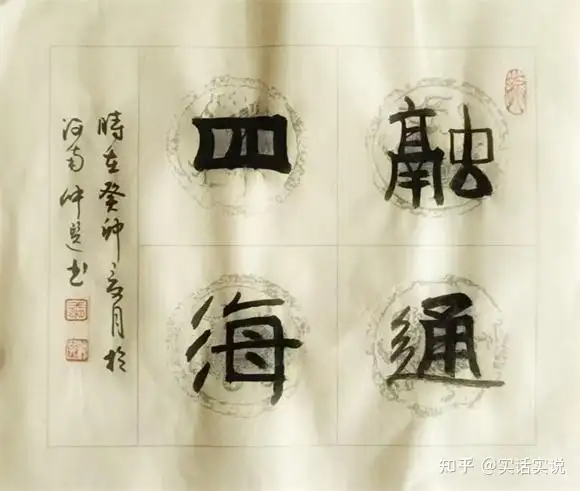 融通
四海
時在癸卯亥月於
河南仲书
知乎 @实话实说